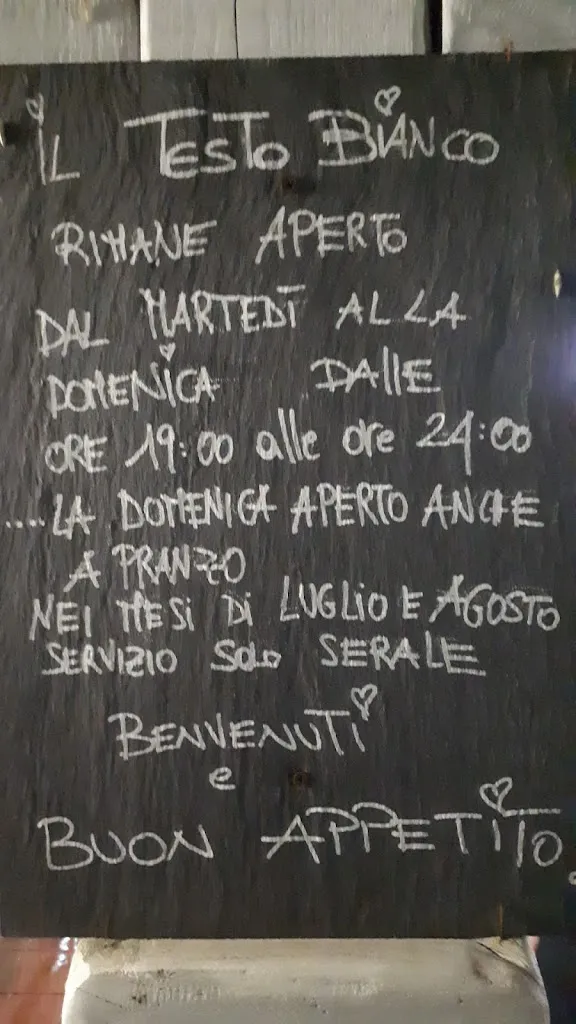 iL TESTO BIANCO
RIMANE APERTO
DAL MARTEDÌ ALLA
DOMENICA DALLE
ORE 19:00 alle ore 24:00
....LA DOMENICA APERTO ANCHE
A PRANZO
NEI MESI DI LUGLIO E AGOSTO
SERVIZIO SOLO SERALE
BENVENUTI
e
BUON APPETITO.